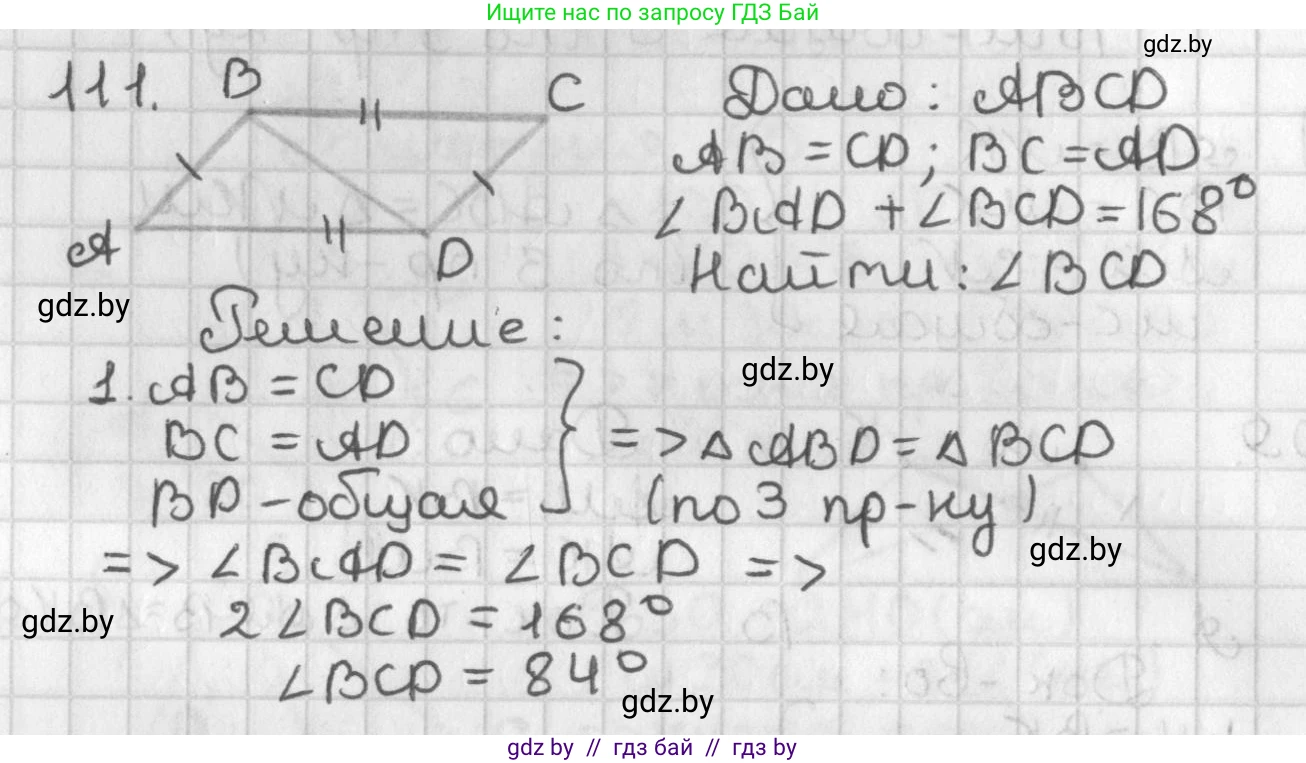 Ищите нас по запросу ГДЗ Бай
gdz.by
111. B C
A D
Дано: ABCD
AB = CD; BC = AD
∠BAD + ∠BCD = 168°
Найти: ∠BCD
gdz.by
Решение:
gdz.by
1. AB = CD
BC = AD
BD - общая
} => △ABD = △BCD
(по 3 пр-ку)
gdz.by
=> ∠BAD = ∠BCD =>
gdz.by
2∠BCD = 168°
∠BCD = 84°
gdz.by
gdz by // гдз бай // гдз by